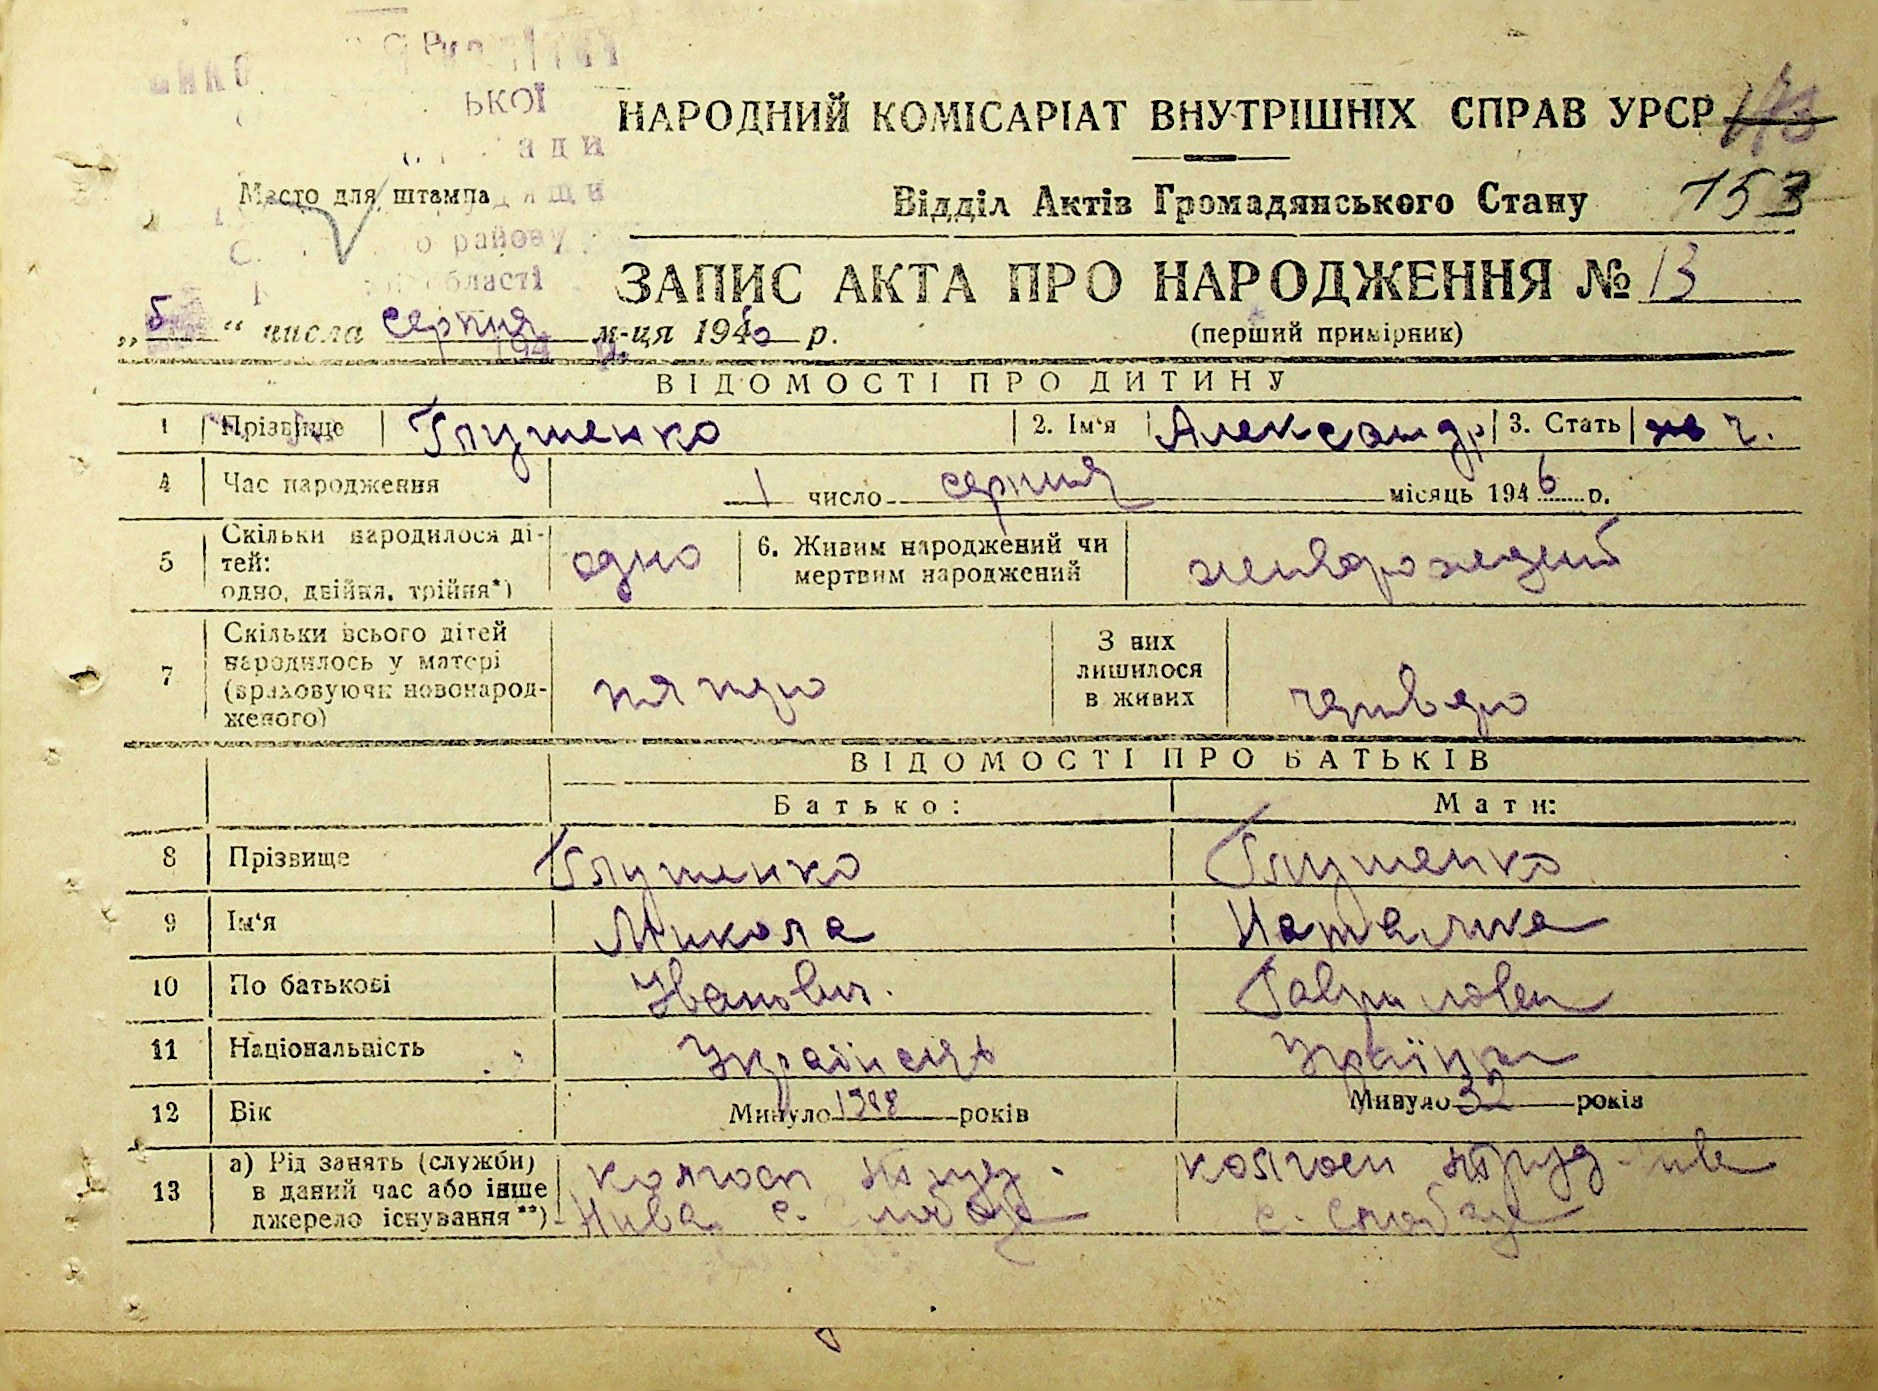 ької
ади
НАРОДНИЙ КОМІСАРІАТ ВНУТРІШНІХ СПРАВ УРСР
Место для штампа
Відділ Актів Громадянського Стану 153
о району
області
ЗАПИС АКТА ПРО НАРОДЖЕННЯ № 13
„6“ числа серпня м-ця 1946 р.
(перший примірник)
194 р.
ВІДОМОСТІ ПРО ДИТИНУ
1 Прізвище Глушенко 2. Ім'я Александр 3. Стать ч.
4 Час народження 1 число серпня місяць 1946 р.
5 Скільки народилося дітей: одно, двійня, трійня*) одно 6. Живим народжений чи мертвим народжений
7 Скільки всього дітей народилось у матері (враховуючи новонародженого) пятеро З них лишилося в живих четверо
ВІДОМОСТІ ПРО БАТЬКІВ
Батько: Мати:
8 Прізвище Глушенко Глушенко
9 Ім'я Микола Наталка
10 По батькові Іванович. Гавриловна
11 Національність Українець Українка
12 Вік Минуло років Минуло 32 років
13 а) Рід занять (служби) в даний час або інше джерело існування**) колгосп Нива с. колгосп с. Слобода